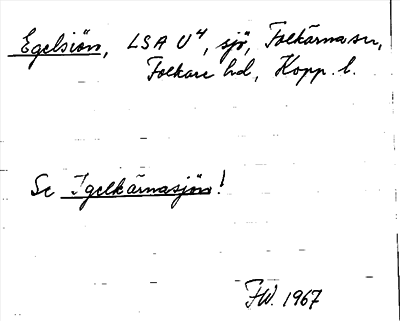 Egelsjön, LSA U4, sjö, Folkärna sn,
Folkare hd, Kopp. l.
Se Igelkärnasjön!
FW. 1967